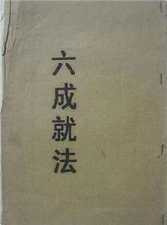 六成就法